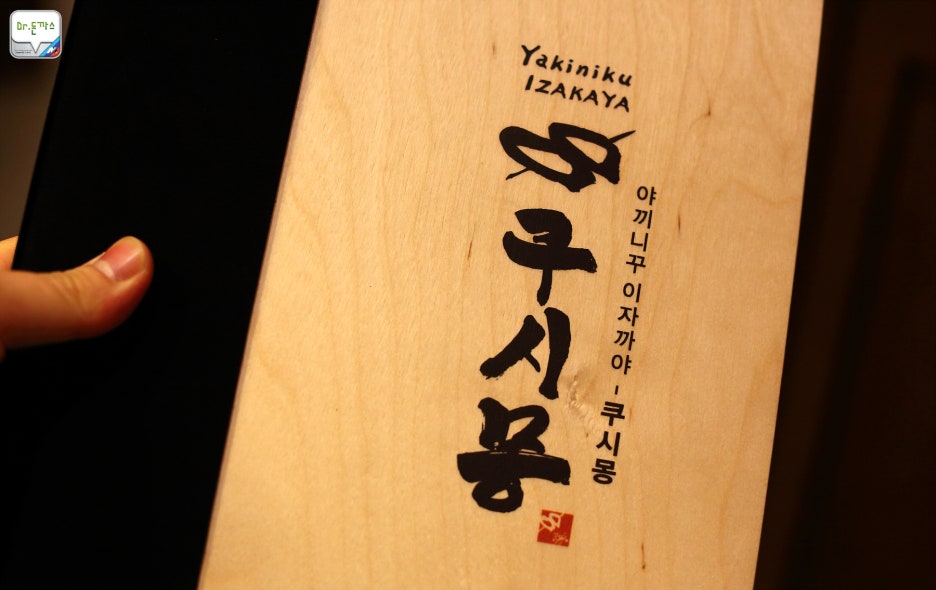 Dr.돈까스
Yakiniku
IZAKAYA
쿠시몽
야끼니꾸 이자까야 - 쿠시몽